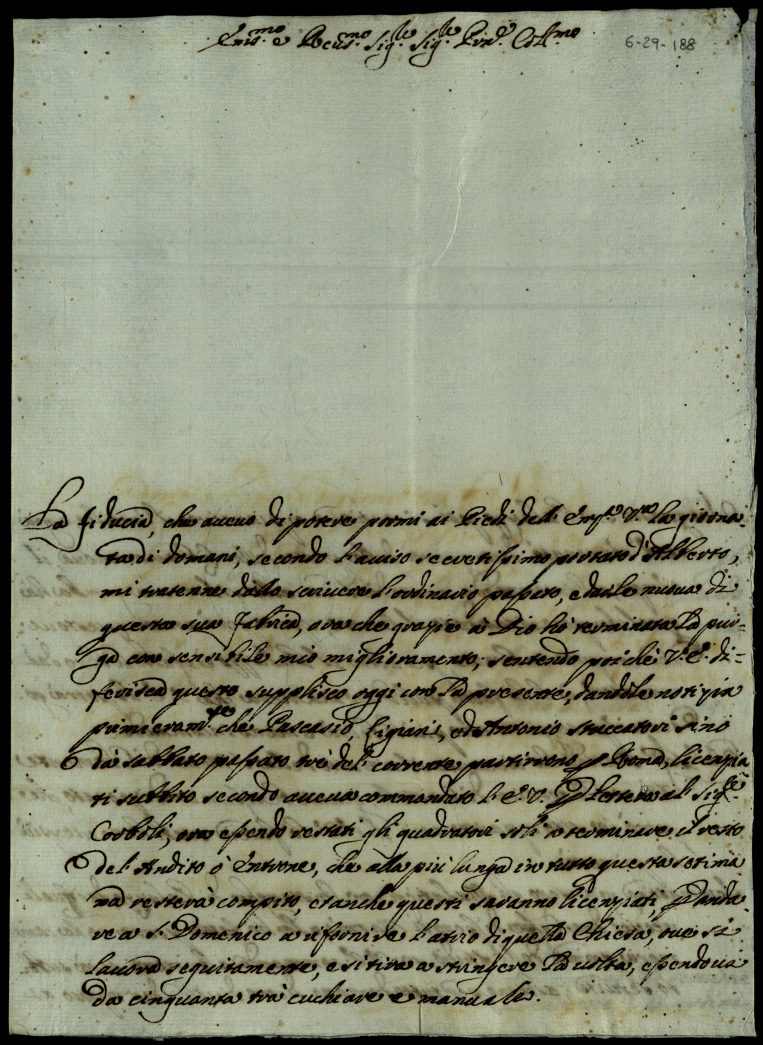 Em.mo e Rev.mo Sig.re Sig.re Pron.e Coll.mo
6-29-188
La fiducia, che avevo di potere pormi ai Piedi dell' Em.za V.ra la giorna
ta di domani, secondo l'aviso secretissimo portato d'Alberto,
mi tratenne dallo scrivere l'ordinario passato, e darle nuova di
questa sua fabrica, ora che grazie à Dio hò terminata la pur=
ga con sensibile mio miglioramento; sentendo poi che V. E. di=
ferisca questo supplisco oggi con la presente, dandole notizia
primieram.te che Pascasio, Ligiari, ed Antonio stuccatori sino
da sabbato passato trè del corrente partirono p Roma, licenzia
ti subbito secondo aveva commandato l' E. V. p lettera al Sig.re
Corboli; ora essendo restati gli quadratori soli a terminare il resto
del Andito ò Entrone, che alla più lunga in tutto questa setima
na resterà compito, et anche questi saranno licenziati, p anda
re a S. Domenico a rifornire l'atrio di quella Chiesa, ove si
lavora seguitamente, e si tira a stringere la volta, essendovi
da cinquanta trà cuchiare e manuali.